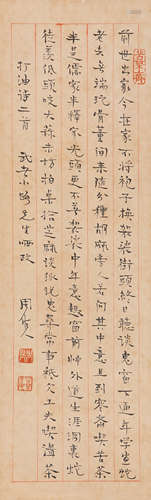 前世出家今在家不將袍子換袈裟街頭終日聽談鬼窗下通年學画蛇
老去無端玩骨董閒来隨分種胡麻旁人若问其中意且到寒斋喫苦茶
半是儒家半釋家光頭更不著袈裟中年意趣窗前艸外道生涯洞裏蛇
徒羡低頭咬大蒜未妨拍桌拾芝麻談狐説鬼尋常事只欠工夫喫講茶
打油诗二首 武者小路先生哂政
周作人